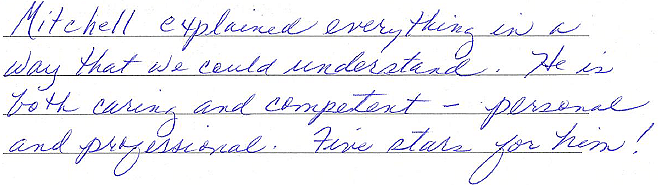 Mitchell explained everything in a
way that we could understand. He is
both caring and competent – personal
and professional. Five stars for him!